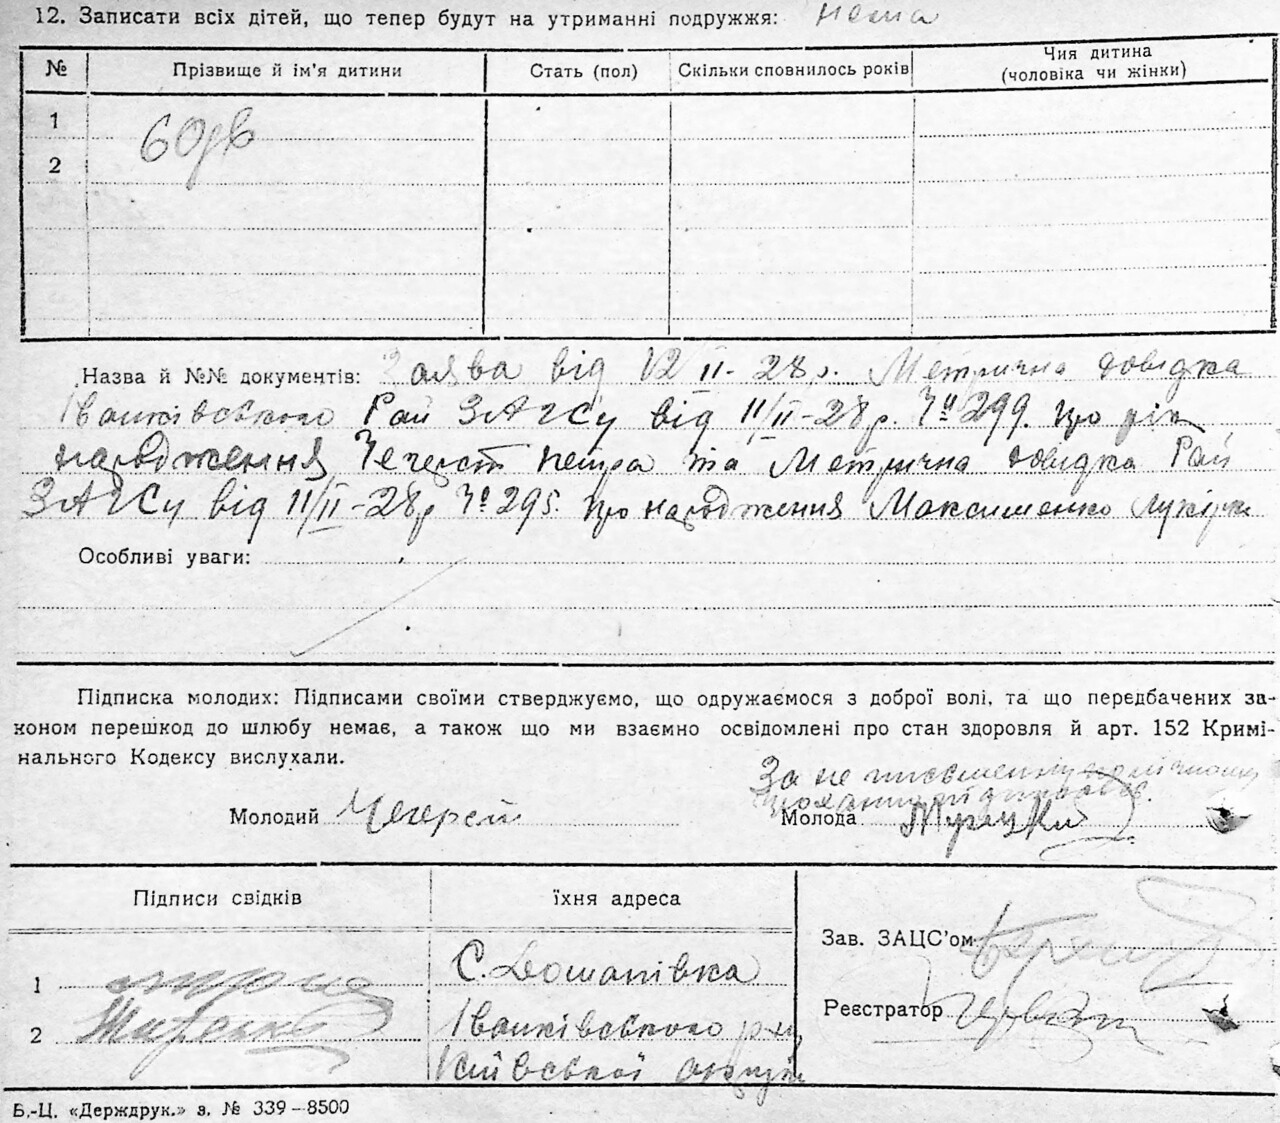 12. Записати всіх дітей, що тепер будуть на утриманні подружжя: нема
№ Прізвище й ім'я дитини Стать (пол) Скільки сповнилось років Чия дитина (чоловіка чи жінки)
1
2
Назва й №№ документів: Заява від 12 II-28 р. Метрична довідка
Іванківського Рай ЗАГСу від 11/II-28 р. № 299. про рік
народження Петра та Метрична довідка Рай
ЗАГСу від 11/II-28 р № 295. про народження Максименко
Особливі уваги:
Підписка молодих: Підписами своїми стверджуємо, що одружаємося з доброї волі, та що передбачених за-
коном перешкод до шлюбу немає, а також що ми взаємно освідомлені про стан здоровля й арт. 152 Кримі-
нального Кодексу вислухали.
За не
Молодий Молода
Підписи свідків їхня адреса
Зав. ЗАЦС'ом
1 С.
Реєстратор
2 Іванківського р-ну
Київської округи
Б.-Ц. «Держдрук.» з. № 339—8500